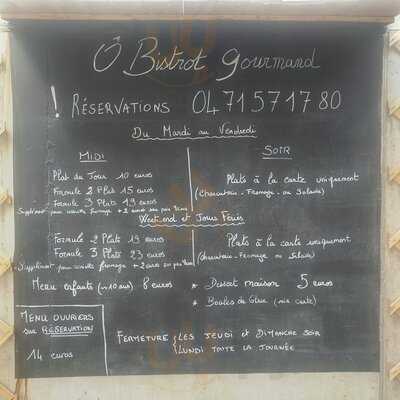 Ô Bistrot Gourmand
! RÉSERVATIONS 04 71 57 17 80
Du Mardi au Vendredi
MIDI
Plat du Jour 10 euros
Formule 2 Plats 15 euros
Formule 3 Plats 19 euros
Supplément pour assiette fromage + 2 euros
SOIR
Plats à la carte uniquement
(Charcuterie - Fromage - ou Salade)
Week-end et Jours Fériés
Formule 2 Plats 19 euros
Formule 3 Plats 23 euros
Supplément pour assiette fromage + 2 euros
Plats à la carte uniquement
(Charcuterie - Fromage ou Salade)
Menu enfants (-10 ans) 8 euros
* Dessert maison 5 euros
* Boules de Glace (voir carte)
MENU OUVRIERS
sur RÉSERVATION
14 euros
FERMETURE { LES JEUDI et DIMANCHE SOIR
LUNDI TOUTE LA JOURNÉE